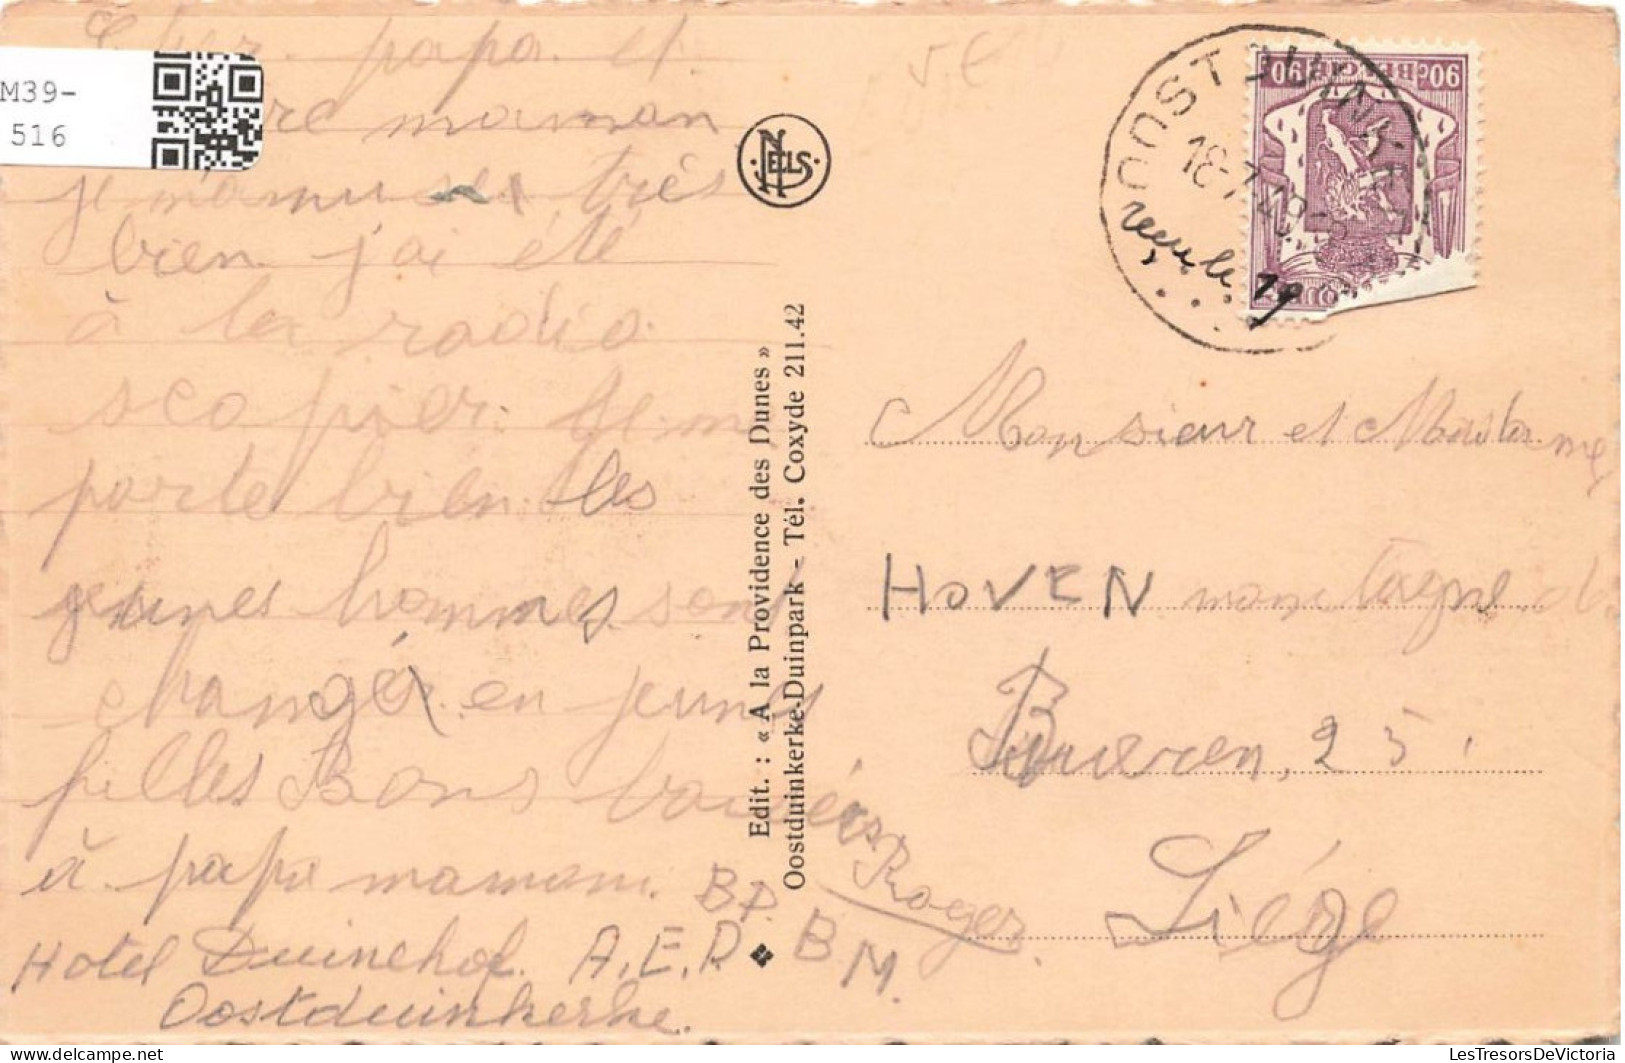 Cher papa et
chère maman
je m'amuse très
bien j'ai été
à la radio
scopier. Je me
porte bien les
jeunes hommes sont
changér en jeunes
filles Bons baisers
à papa maman.
Roger
BP.
BM.
Hotel Duinehof. A.E.R
Oostduinkerke.
M39-
516
NELS
Edit. : « A la Providence des Dunes »
Oostduinkerke-Duinpark - Tél. Coxyde 211.42
OOSTDUINKERKE
18-7-49
reçu le 19
90c BELGIE 90
Monsieur et Madame
HOVEN montagne de
Bueren, 25
Liége
LesTresorsDeVictoria
www.delcampe.net